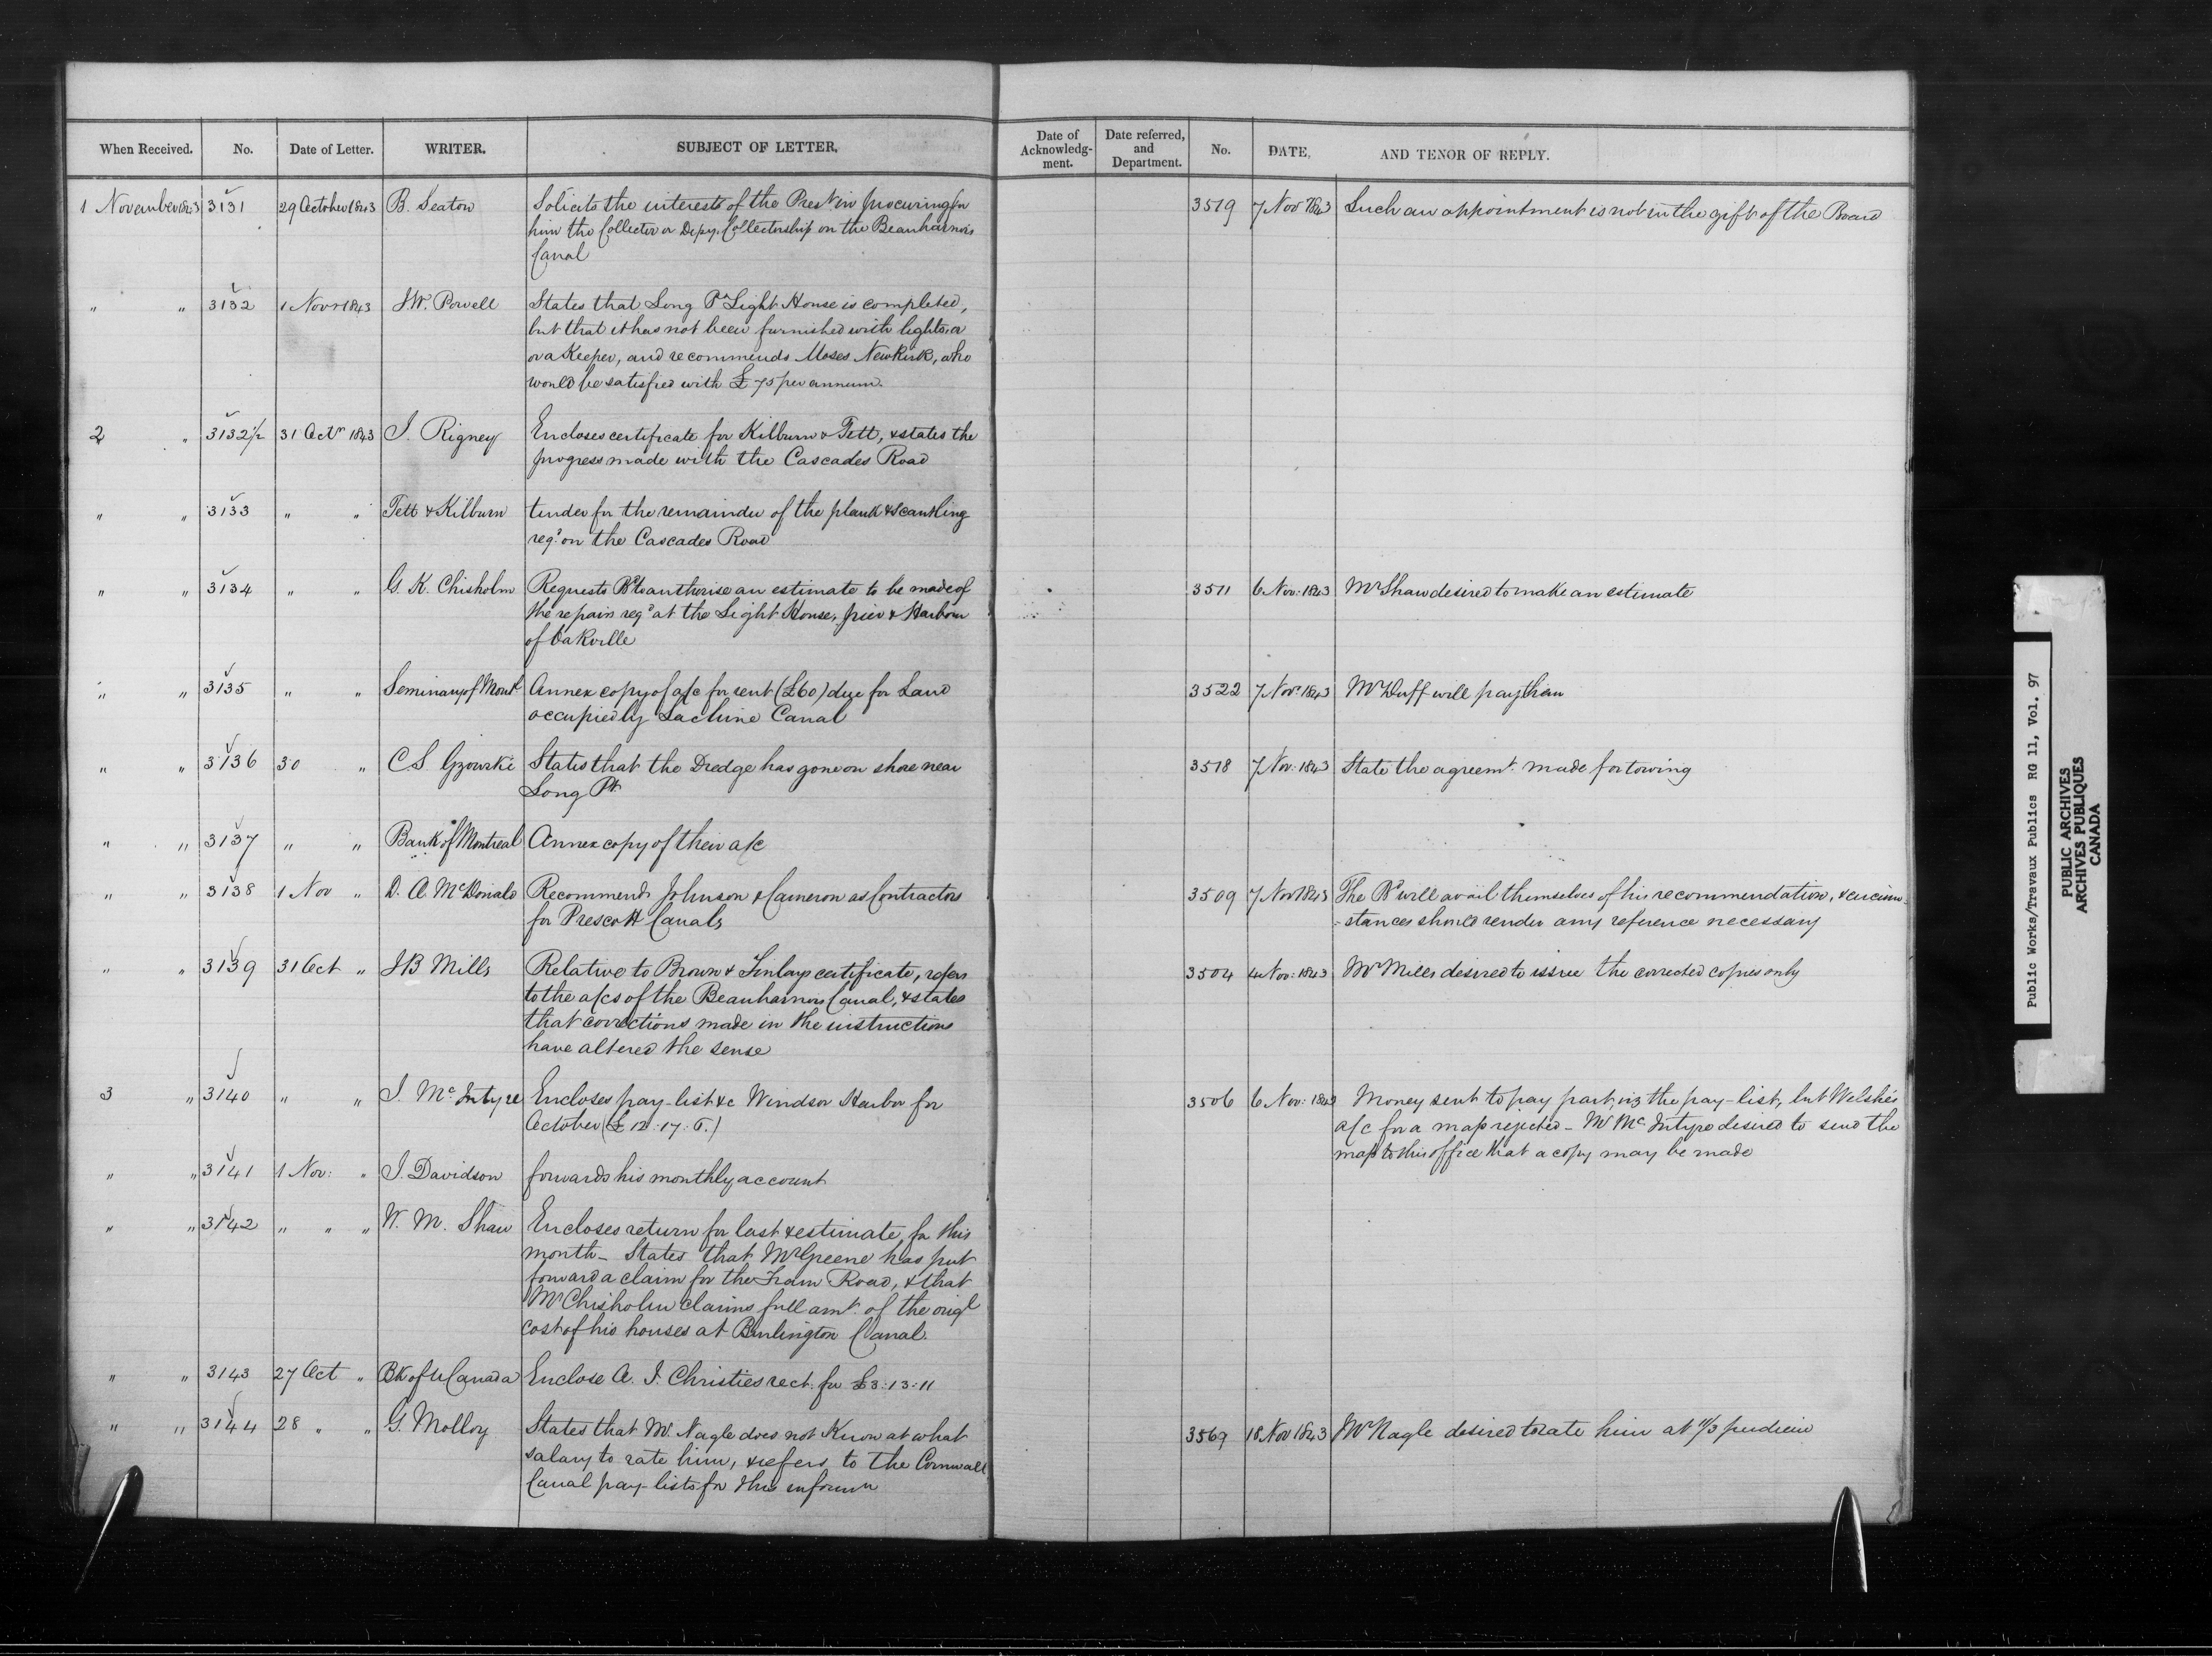 When Received. No. Date of Letter. WRITER. SUBJECT OF LETTER. Date of Acknowledg-ment. Date referred, and Department. No. DATE, AND TENOR OF REPLY.
1 November 1843 3131 29 October 1843 B. Seaton Solicits the interests of the Prest in procuring for 3519 7 Nov 1843 Such an appointment is not in the gift of the Board
him the Collector or Depy. Collectorship on the Beauharnois
Canal
" " 3132 1 Novr 1843 J.W. Powell States that Long Pt Light House is completed,
but that it has not been furnished with lights, or
or a Keeper, and recommends Moses Newkirk, who
would be satisfied with £75 per annum.
2 " 3132½ 31 Octr 1843 J. Rigney Encloses certificate for Kilburn & Tett, & states the
progress made with the Cascades Road
" " 3133 " " Tett & Kilburn tender for the remainder of the plank & scantling
reqd. on the Cascades Road
" " 3134 " " G. K. Chisholm Requests Bd to authorise an estimate to be made of 3511 6 Nov: 1843 Mr Shaw desired to make an estimate
the repairs reqd at the Light House, pier & Harbour
of Oakville
" " 3135 " " Seminary of Montl Annex copy of a/c for rent (£60) due for Land 3522 7 Novr 1843 Mr Duff will pay them
occupied by Lachine Canal
" " 3136 30 " C.S. Gzowski States that the Dredge has gone on shore near 3518 7 Nov: 1843 State the agreemt. made for towing
Long Pt
" " 3137 " " Bank of Montreal Annex copy of their a/c
" " 3138 1 Nov " D. A. McDonald Recommends Johnson & Cameron as Contractors 3509 7 Nov 1843 The Bd will avail themselves of his recommendation, & circum-
for Prescott Canals =stances should render any reference necessary
" " 3139 31 Oct " J B Mills Relative to Brown & Finlays certificate, refers 3504 4 Nov: 1843 Mr Mills desired to issue the corrected copies only
to the a/cs of the Beauharnois Canal, & states
that corrections made in the instructions
have altered the sense
3 " 3140 " " J. McIntyre Encloses pay-list &c Windsor Harbor for 3506 6 Nov: 1843 Money sent to pay part, viz the pay-list, but Welsh's
October (£12:17:6.) a/c for a map rejected - Mr McIntyre desired to send the
map to this office that a copy may be made
" " 3141 1 Nov: " J. Davidson forwards his monthly account
" " 3142 " " " W. M. Shaw Encloses return for last & estimate for this
month - States that Mr Greene has put
forward a claim for the Tram Road, & that
Mr Chisholm claims full amt. of the origl
cost of his houses at Burlington Canal.
" " 3143 27 Oct " Bk of U Canada Enclose A. J. Christies rect. for £3:13:11
" " 3144 28 " " G. Molloy States that Mr. Nagle does not know at what 3569 18 Nov 1843 Mr Nagle desired to rate him at 11/3 per diem
salary to rate him, & refers to the Cornwall
Canal pay-lists for this informn
Public Works/Travaux Publics RG 11, Vol. 97
PUBLIC ARCHIVES
ARCHIVES PUBLIQUES
CANADA